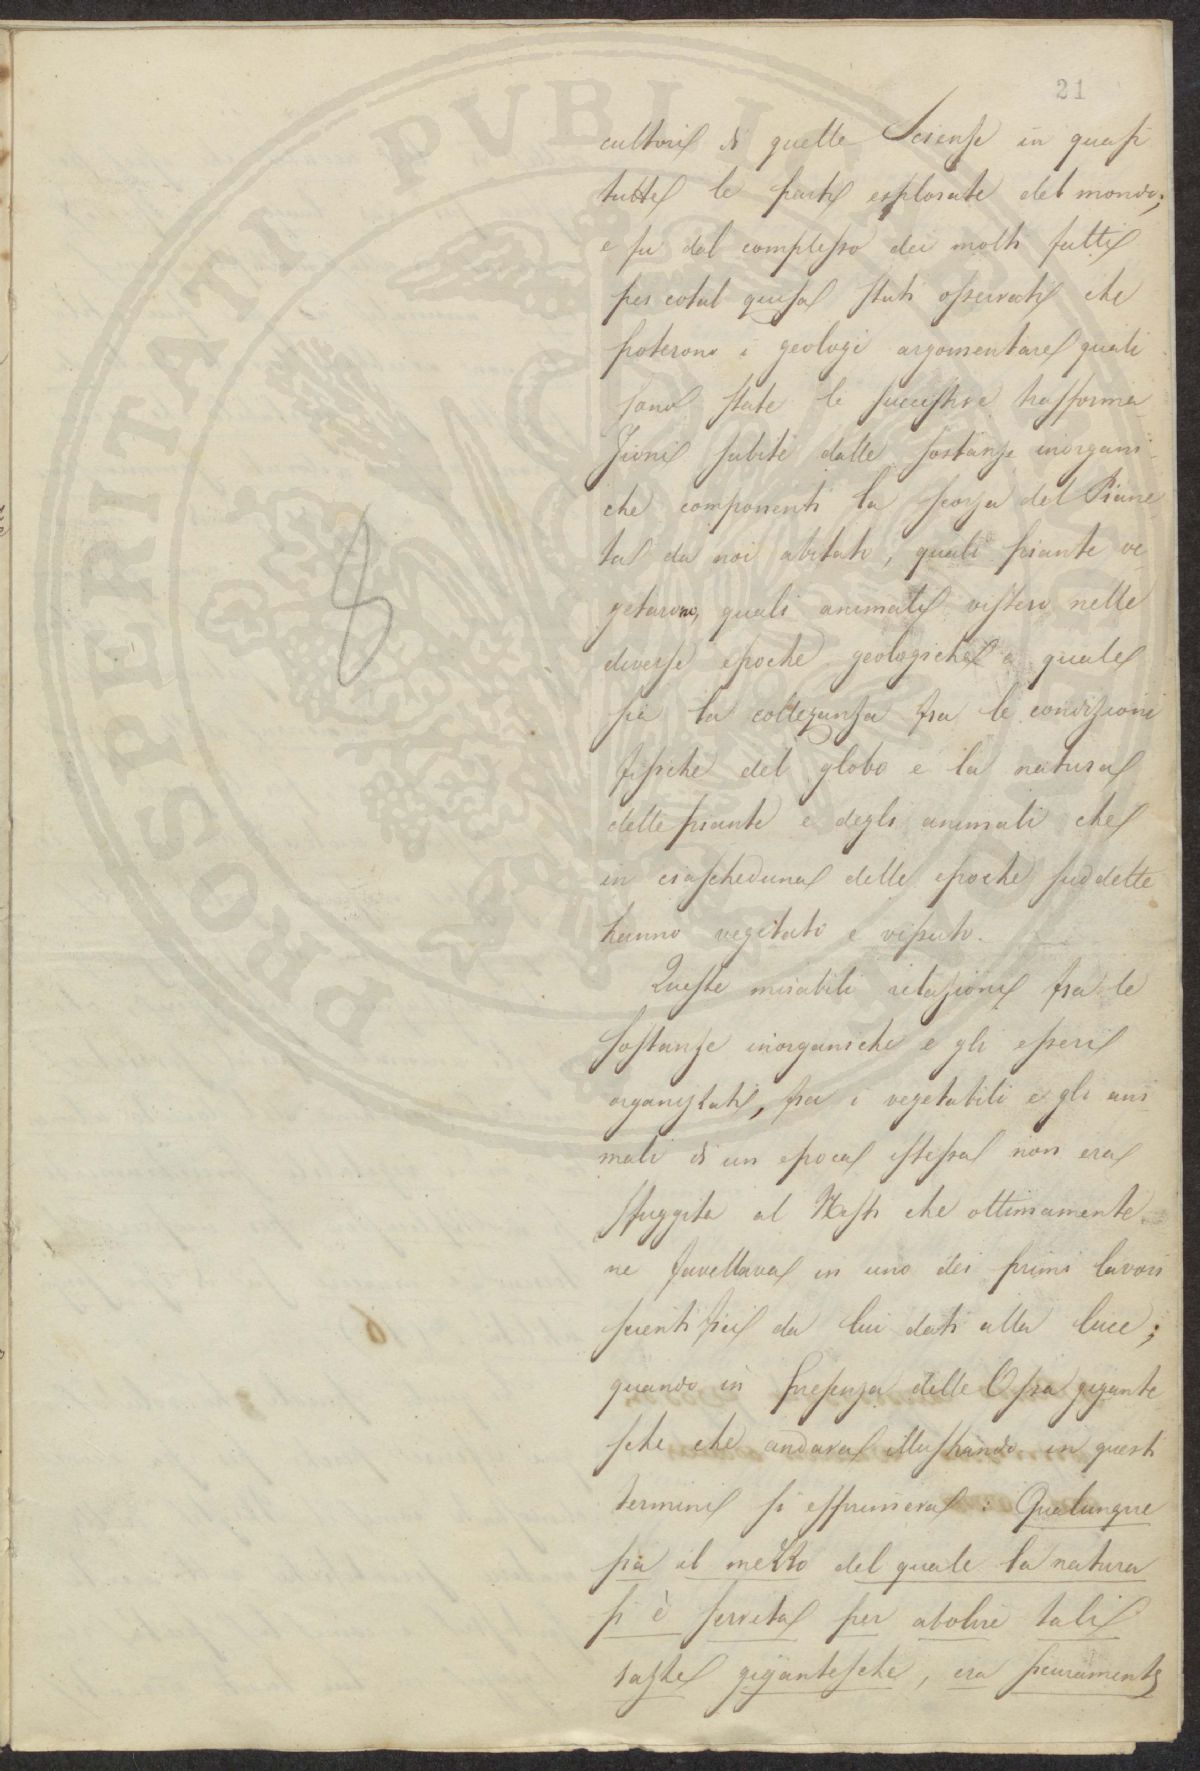 21
cultori di quelle Scienze in quasi
tutte le parti esplorate del mondo;
e fu dal complesso dei molti fatti
per cotal guisa stati osservati che
poterono i geologi argomentare quali
sono state le successive trasforma
zioni subite dalle sostanze inorgani
che componenti la scorza del Piane
ta da noi abitato, quali piante ve
getarono, quali animali vissero nelle
diverse epoche geologiche e quale
sia la colleganza fra le condizioni
fisiche del globo e la natura
delle piante e degli animali che
in ciascheduna delle epoche suddette
hanno vegetato e vissuto.
Queste mirabili relazioni fra le
sostanze inorganiche e gli esseri
organizzati, fra i vegetabili e gli ani
mali di un epoca istessa non era
sfuggita al Nesti che ottimamente
ne favellava in uno dei primi lavori
scientifici da lui dati alla luce;
quando in presenza delle Ossa gigante
sche che andava illustrando in questi
termini si esprimeva: Qualunque
sia il mezzo del quale la natura
si è servita per abolire tali
razze gigantesche, era sicuramente
8
PROSPERITATI PVBLICAE